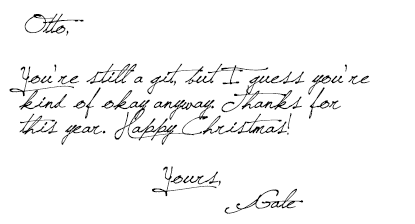 Otto,
You're still a git, but I guess you're
kind of okay anyway. Thanks for
this year. Happy Christmas!
Yours,
Gale